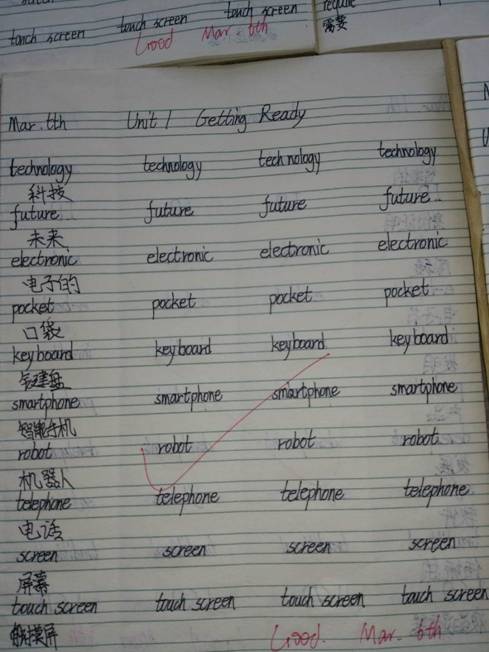 touch screen touch screen touch screen
Good Mar. 6th
require
需要
Mar. 6th Unit 1 Getting Ready
technology technology technology technology
科技
future future future future
未来
electronic electronic electronic electronic
电子的
pocket pocket pocket pocket
口袋
keyboard keyboard keyboard keyboard
键盘
smartphone smartphone smartphone smartphone
智能手机
robot robot robot robot
机器人
telephone telephone telephone telephone
电话
screen screen screen screen
屏幕
touch screen touch screen touch screen touch screen
触摸屏 Good. Mar. 6th